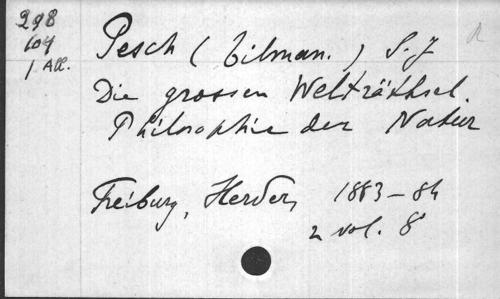 298
104
1 All.
Pesch (Tilman.) S. J
Die grossen Welträthsel.
Philosophie der Natur
Freiburg, Herder, 1883-84
2 vol. 8°